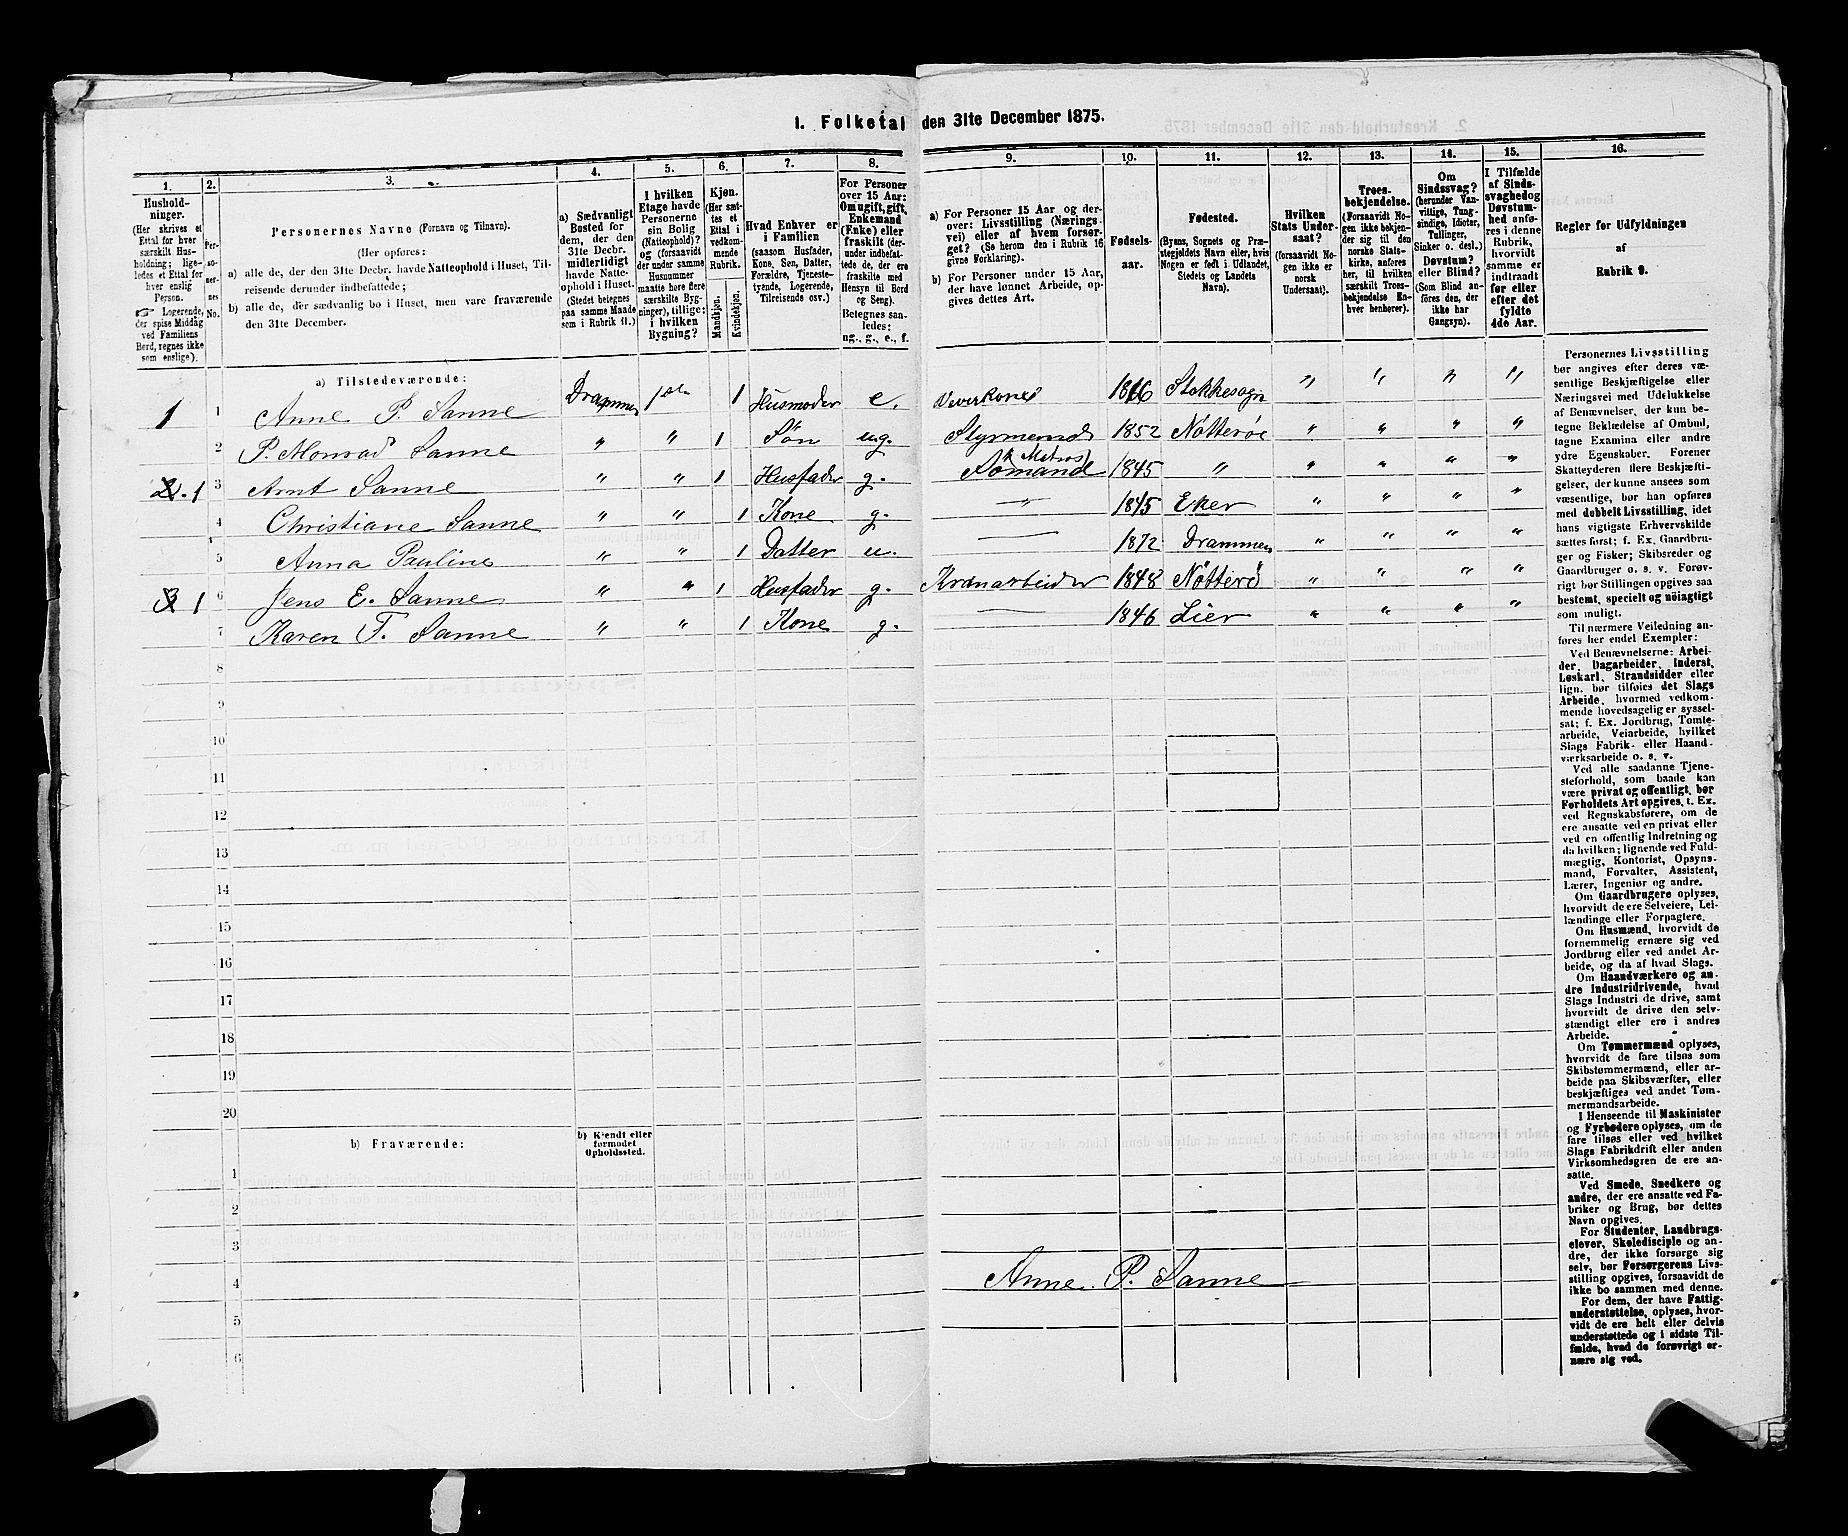 1. Folketal den 31te December 1875.
1. 2. 3. 4. 5. 6. 7. 8. 9. 10. 11. 12. 13. 14. 15. 16.
Husholdninger.
(Her skrives et
Ettal for hver
særskilt Husholdning;
ligeledes et Ettal for
hver enslig
Person.
☞ Logerende,
der spise Middag
ved Familiens
Bord, regnes ikke
som enslige).
Personernes No.
Personernes Navne (Fornavn og Tilnavn).
(Her opføres:
a) alle de, der den 31te Decbr. havde Natteophold i Huset, Tilreisende derunder indbefattede;
b) alle de, der sædvanlig bo i Huset, men vare fraværende
den 31te December.
a) Sædvanligt
Bosted for
dem, der den
31te Decbr.
midlertidigt
havde Natteophold
i Huset.
(Stedet betegnes
paa samme Maade
som i Rubrik 11.)
I hvilken
Etage havde
Personerne
sin Bolig
(Natteophold)?
og (forsaavidt
der under samme
Husnummer
maatte høre flere
særskilte Bygninger),
tillige:
i hvilken
Bygning?
Kjøn.
(Her sættes
et
Ettal i
vedkommende
Rubrik.
Mandkjøn. Kvindekjøn.
Hvad Enhver er
i Familien
(saasom Husfader,
Kone, Søn, Datter,
Forældre, Tjenestetyende,
Logerende,
Tilreisende osv.)
For Personer
over 15 Aar:
Om ugift, gift,
Enkemand
(Enke) eller
fraskilt (derunder
indbefattede
de, der ere
fraskilte med
Hensyn til Bord
og Seng).
Betegnes saaledes:
ug., g., e., f.
a) For Personer 15 Aar og derover:
Livsstilling (Næringsvei)
eller af hvem forsørget?
(Se herom den i Rubrik 16
givne Forklaring).
b) For Personer under 15 Aar,
der have lønnet Arbeide, opgives
dettes Art.
Fødselsaar.
Fødested.
(Byens, Sognets og Præstegjeldets
Navn eller, hvis
Nogen er født i Udlandet,
Stedets og Landets
Navn).
Hvilken
Stats Undersaat?
(forsaavidt Nogen
ikke er
norsk
Undersaat).
Troesbekjendelse.
(Forsaavidt Nogen
ikke bekjender
sig til den
norske Statskirke,
anføres
her, til hvilken
særskilt Troesbekjendelse
Enhver
henhører).
Om
Sindssvag?
(herunder Vanvittige,
Tungsindige,
Idioter,
Tullinger,
Sinker o. desl.)
Døvstum?
eller Blind?
(Som Blind anføres
den, der
ikke har
Gangsyn).
I Tilfælde
af Sindssvaghed
og
Døvstumhed
anføres
i denne
Rubrik,
hvorvidt
samme er
indtraadt
før eller
efter det
fyldte
4de Aar.
Regler for Udfyldningen
af
Rubrik 9.
a) Tilstedeværende:
1 1 Anne P. Sanne Drammen 1ste 1 Husmoder e. Stokkesogn " " " "
2 P. Monrad Sanne " " 1 Søn ug. Styrmand 1852 Nøtterøe " " " "
2. 1 3 Arnt Sanne " " 1 Husfader g. Sømand (Matros) 1845 " " " " "
4 Christiane Sanne " " 1 Kone g. " 1845 Eker " " " "
5 Anna Pauline " " 1 Datter u. — 1872 Drammen " " " "
3 1 6 Jens E. Sanne " " 1 Husfader g. Kranarbeider 1848 Nøtterö " " " "
7 Karen T. Sanne " " 1 Kone g. — 1846 Lier " " " "
8
9
10
11
12
13
14
15
16
17
18
19
20
b) Fraværende:
b) Kjendt eller
formodet
Opholdssted.
1
2
3
4
5
6
Anne P. Sanne
Personernes Livsstilling
bør angives efter deres væsentlige
Beskjæftigelse eller
Næringsvei med Udelukkelse
af Benævnelser, der kun betegne
Beklædelse af Ombud,
tagne Examina eller andre
ydre Egenskaber. Forener
Skatteyderen flere Beskjæftigelser,
der kunne ansees som
væsentlige, bør han opføres
med dobbelt Livsstilling, idet
hans vigtigste Erhvervskilde
sættes først; f. Ex. Gaardbruger
og Fisker; Skibsreder og
Gaardbruger o. s. v. Forøvrigt
bør Stillingen opgives saa
bestemt, specielt og nöiagtigt
som muligt.
Til nærmere Veiledning anføres
her endel Exempler:
Ved Benævnelserne: Arbeider,
Dagarbeider, Inderst,
Løskarl, Strandsidder eller
lign. bør tilføies det Slags
Arbeide, hvormed vedkommende
hovedsagelig er sysselsat;
f. Ex. Jordbrug, Tomtearbeide,
Veiarbeide, hvilket
Slags Fabrik- eller Haandværksarbeide
o. s. v.
Ved alle saadanne Tjenesteforhold,
som baade kan
være privat og offentligt, bør
Forholdets Art opgives, t. Ex.
ved Regnskabsførere, om de
ere ansatte ved en privat eller
ved en offentlig Indretning og
da hvilken; lignende ved Fuldmægtig,
Kontorist, Opsynsmand,
Forvalter, Assistent,
Lærer, Ingeniør og andre.
Om Gaardbrugere oplyses,
hvorvidt de ere Selveiere, Leilændinge
eller Forpagtere.
Om Husmænd, hvorvidt de
fornemmelig ernære sig ved
Jordbrug eller ved andet Arbeide,
og da af hvad Slags.
Om Haandværkere og andre
Industridrivende, hvad
Slags Industri de drive, samt
hvorvidt de drive den selvstændigt
eller ere i andres
Arbeide.
Om Tømmermænd oplyses,
hvorvidt de fare tilsøs som
Skibstømmermænd, eller arbeide
paa Skibsværfter, eller
beskjæftiges ved andet Tømmermandsarbeide.
I Henseende til Maskinister
og Fyrbødere oplyses, om de
fare tilsøs eller ved hvilket
Slags Fabrikdrift eller anden
Virksomhedsgren de ere ansatte.
Ved Smede, Snedkere og
andre, der ere ansatte ved Fabriker
og Brug, bør dettes
Navn opgives.
For Studenter, Landbrugselever,
Skoledisciple og andre,
der ikke forsørge sig
selv, bør Forsørgerens Livsstilling
opgives, forsaavidt de
ikke bo sammen med denne.
For dem, der have Fattigunderstøttelse,
oplyses, hvorvidt
de ere helt eller delvis
understøttede og i sidste Tilfælde,
hvad de forøvrigt ernære
sig ved.